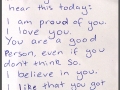 hear this today:
I am proud of you.
I love you.
You are a good
Person, even if you
don't think so.
I believe in you.
I like that you got